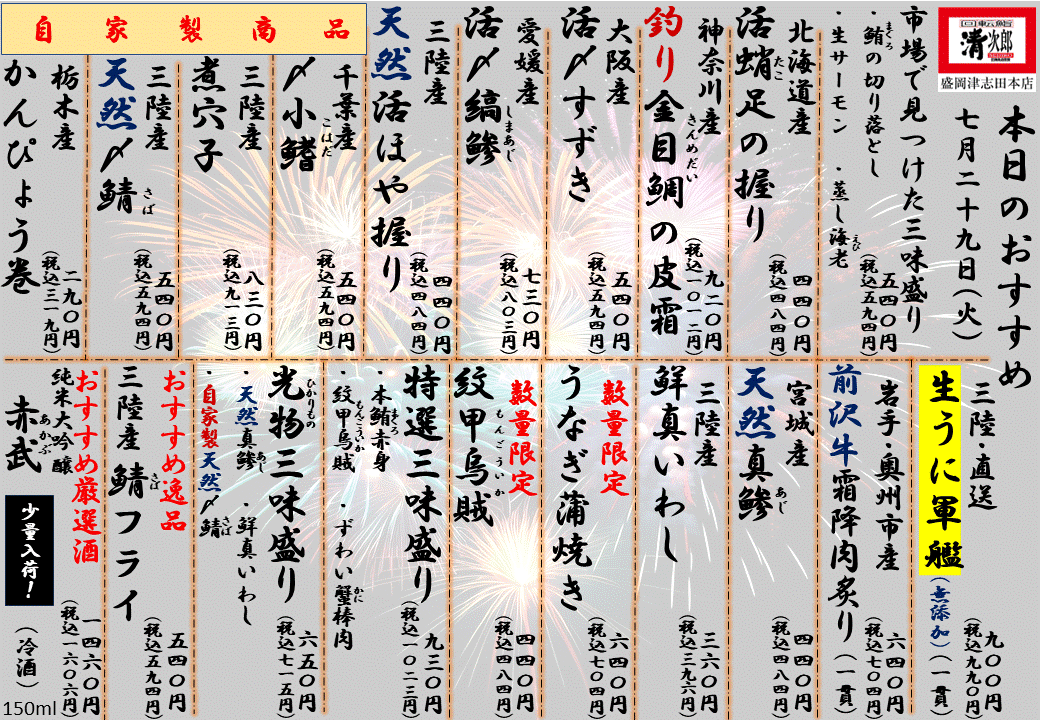 回転鮨
清次郎
盛岡津志田本店
本日のおすすめ
七月二十九日(火)
市場で見つけた三味盛り
・鮪の切り落とし
まぐろ
・生サーモン ・蒸し海老
えび
五四〇円
(税込五九四円)
北海道産
活蛸足の握り
たこ
四四〇円
(税込四八四円)
神奈川産
釣り金目鯛の皮霜
きんめだい
九二〇円
(税込一〇一二円)
大阪産
活〆すずき
五四〇円
(税込五九四円)
愛媛産
活〆縞鰺
しまあじ
七三〇円
(税込八〇三円)
三陸産
天然活ほや握り
四四〇円
(税込四八四円)
自家製商品
千葉産
〆小鰭
こはだ
五四〇円
(税込五九四円)
三陸産
煮穴子
八三〇円
(税込九一三円)
三陸産
天然〆鯖
さば
五四〇円
(税込五九四円)
栃木産
かんぴょう巻
二九〇円
(税込三一九円)
三陸・直送
生うに軍艦
(無添加)(一貫)
九〇〇円
(税込九九〇円)
岩手・奥州市産
前沢牛霜降肉炙り(一貫)
六四〇円
(税込七〇四円)
宮城産
天然真鰺
あじ
四四〇円
(税込四八四円)
三陸産
鮮真いわし
三六〇円
(税込三九六円)
数量限定
うなぎ蒲焼き
六四〇円
(税込七〇四円)
数量限定
紋甲烏賊
もんごういか
四四〇円
(税込四八四円)
特選三味盛り
・本鮪赤身
まぐろ
・紋甲烏賊 ・ずわい蟹棒肉
もんごういか
かに
九三〇円
(税込一〇二三円)
光物三味盛り
ひかりもの
・天然真鰺 ・鮮真いわし
あじ
・自家製天然〆鯖
さば
六五〇円
(税込七一五円)
おすすめ逸品
三陸産 鯖フライ
さば
五四〇円
(税込五九四円)
おすすめ厳選酒
純米大吟醸
赤武
あかぶ
少量入荷!
(冷酒)
一四六〇円
(税込一六〇六円)
150ml